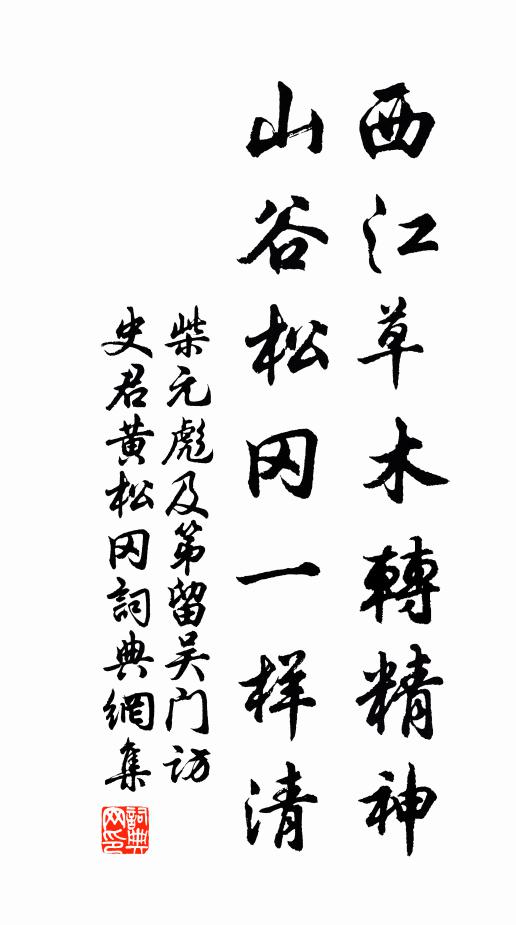 西江草木轉精神
山谷松冈一样清
柴元彪及第留吴门访
史君黄松冈詞典網集
詞典网印